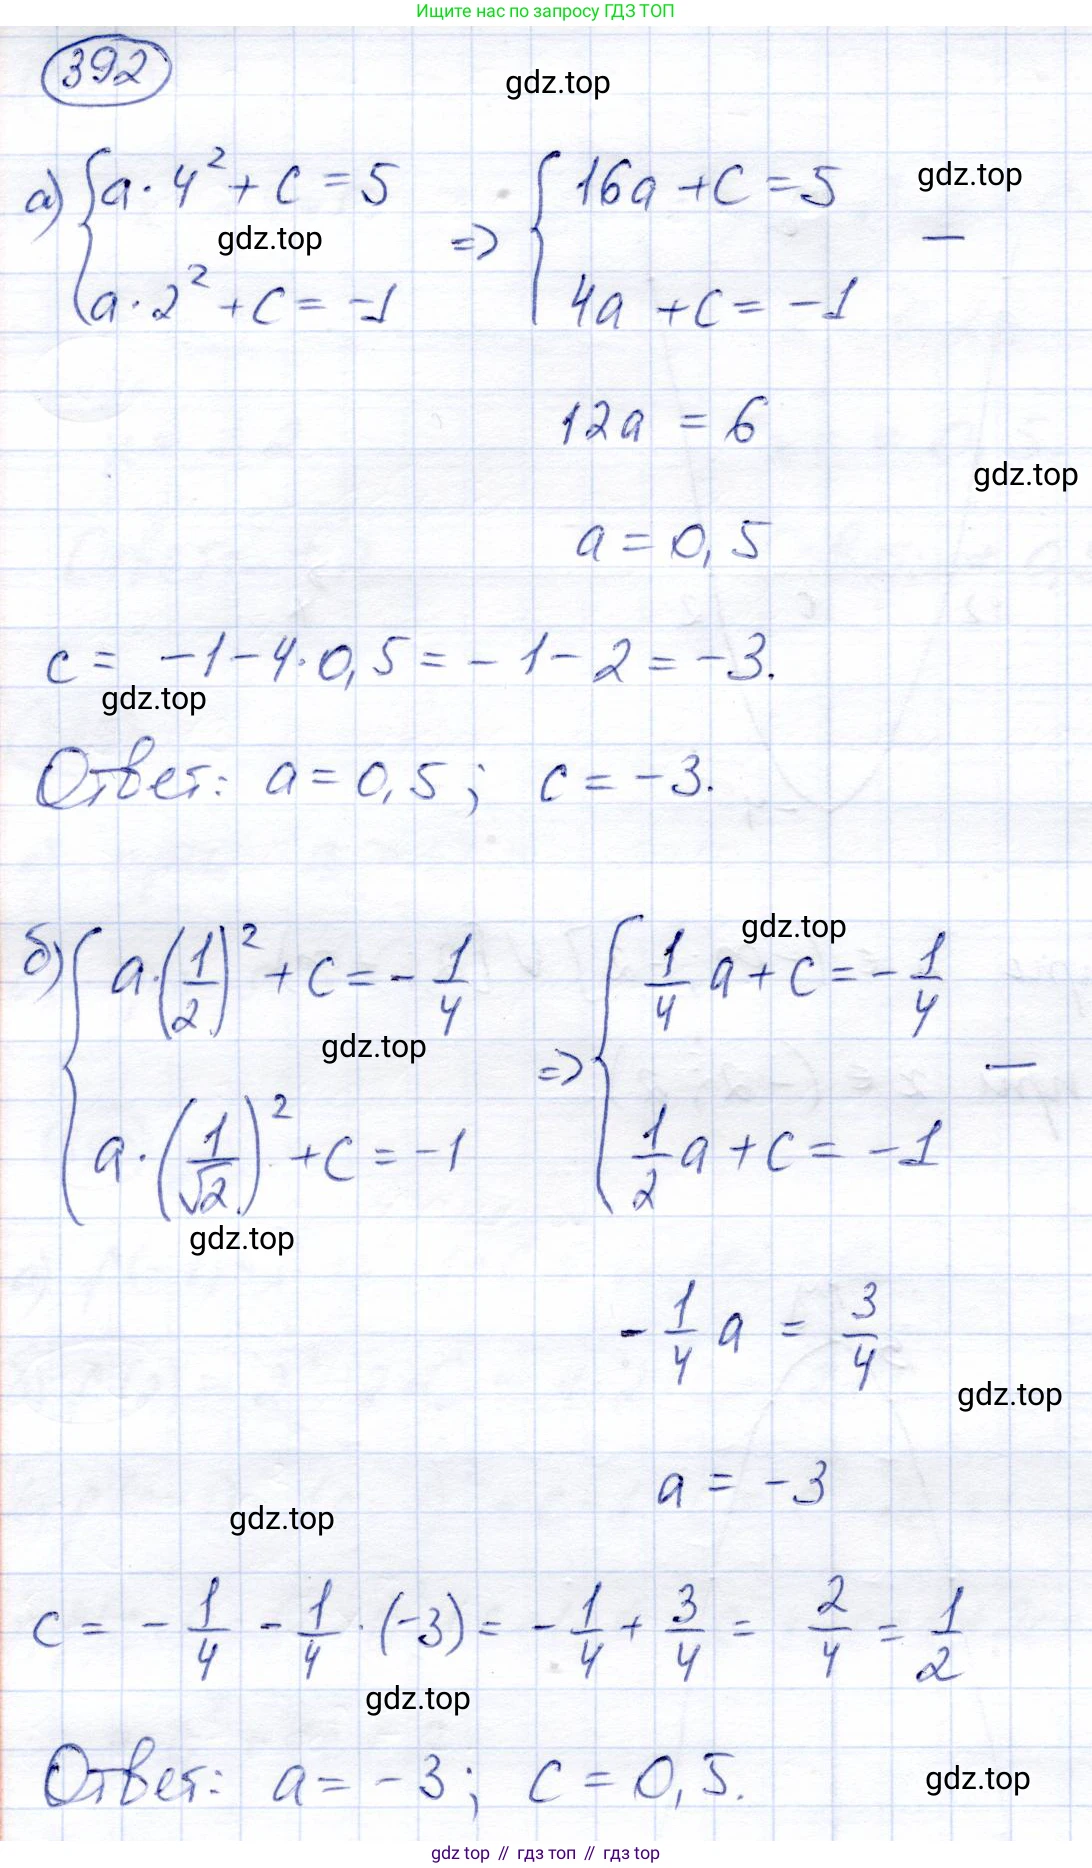 Ищите нас по запросу ГДЗ ТОП
392
gdz.top
а) { a · 4² + c = 5 => { 16a + c = 5
gdz.top
gdz.top
—
a · 2² + c = -1 4a + c = -1
12a = 6
gdz.top
a = 0,5
c = -1 - 4 · 0,5 = -1 - 2 = -3.
gdz.top
Ответ: a = 0,5; c = -3.
gdz.top
б) { a · (1/2)² + c = -1/4 => { 1/4 a + c = -1/4
gdz.top
—
a · (1/√2)² + c = -1 1/2 a + c = -1
gdz.top
-1/4 a = 3/4
gdz.top
a = -3
gdz.top
c = -1/4 - 1/4 · (-3) = -1/4 + 3/4 = 2/4 = 1/2
gdz.top
Ответ: a = -3; c = 0,5.
gdz.top
gdz top // гдз топ // гдз top